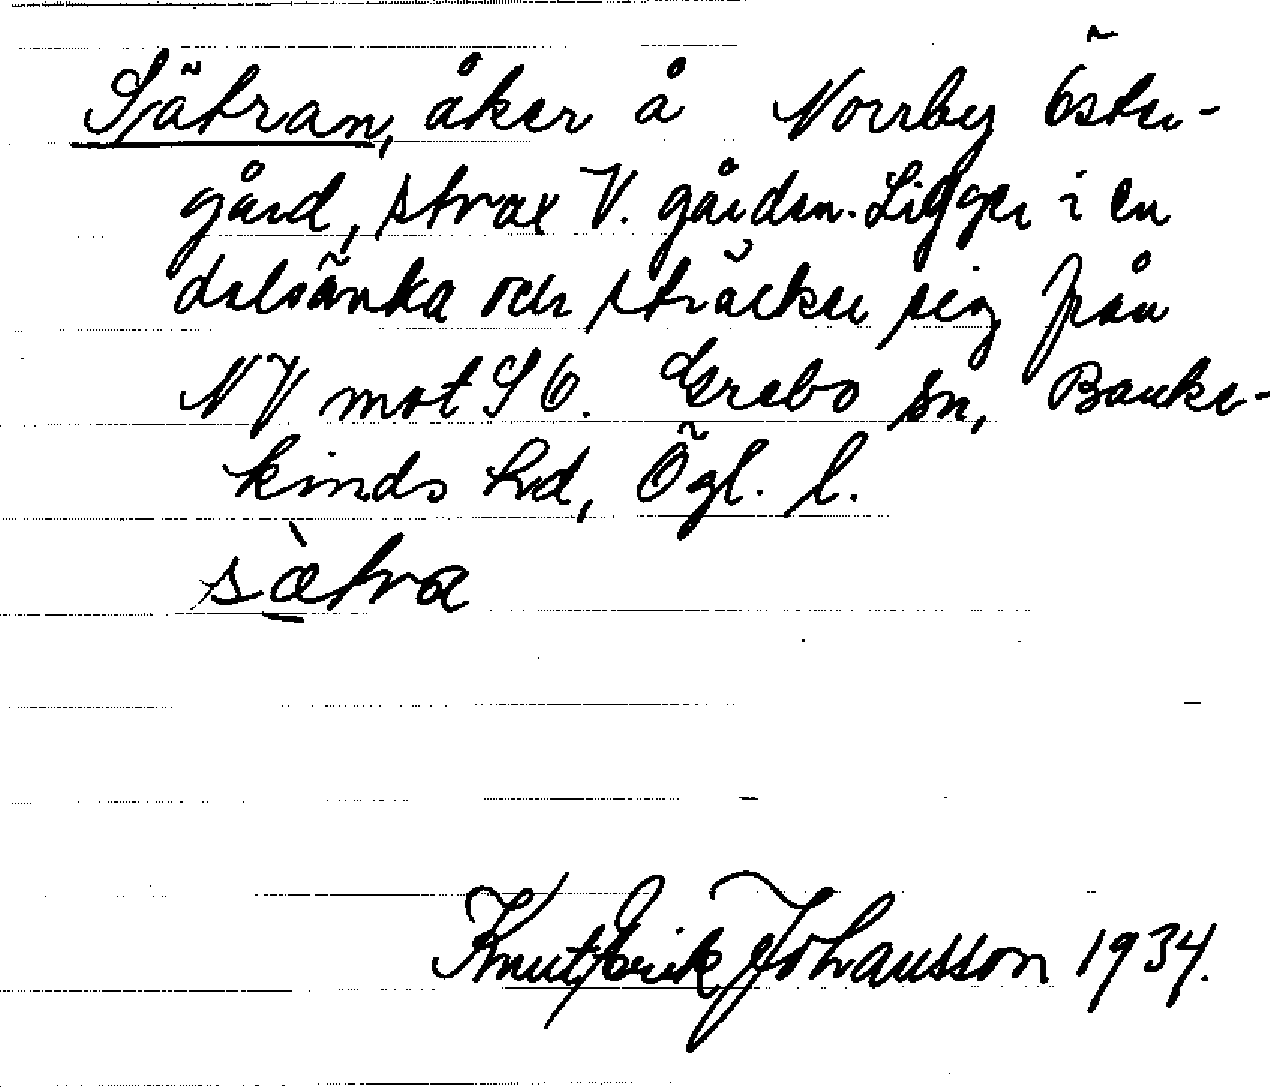 Sätran, åker å Norrby Öster-
gård, strax V. gården. Ligger i en
dalsänka och sträcker sig från
NV mot SÖ. Grebo sn, Banke-
kinds hd, Ögl. l.
sæ̀tra
Knut Erik Johansson 1934.